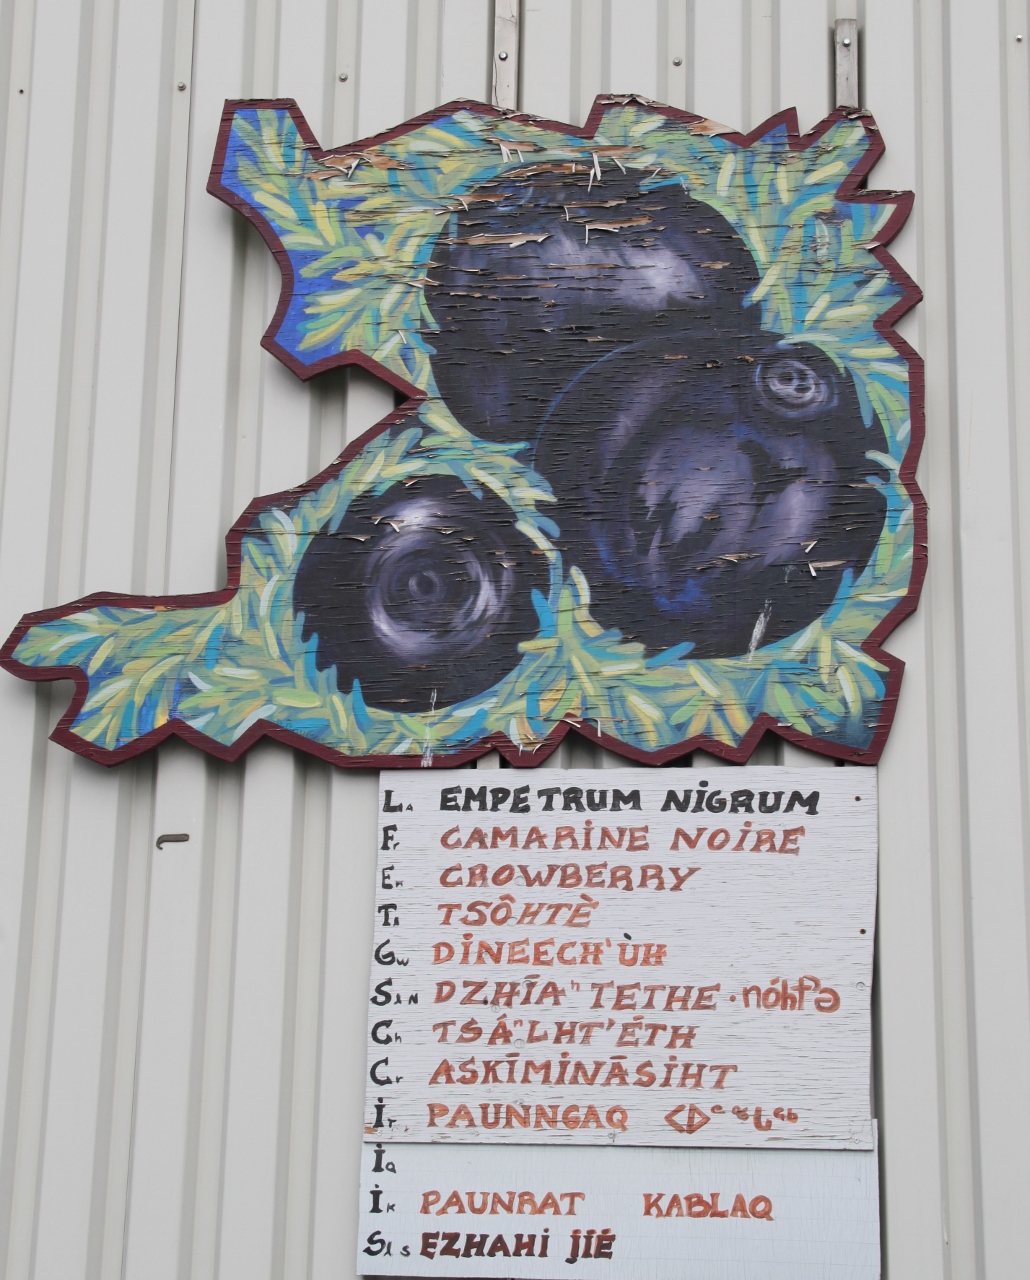 La EMPETRUM NIGRUM
Fr CAMARINE NOIRE
En CROWBERRY
Ta TSÔHTÈ
Gw DINEECH'ÙH
SlN DZHĪAⁿ TETHE · nóhʔə
Ch TSÁⁿLHT'ÉTH
Cr ASKĪMINĀSIHT
It PAUNNGAQ ᐸᐅᓐᖓᖅ
Iq
Ik PAUNRAT KABLAQ
Sls EZHAHI JÍÉ